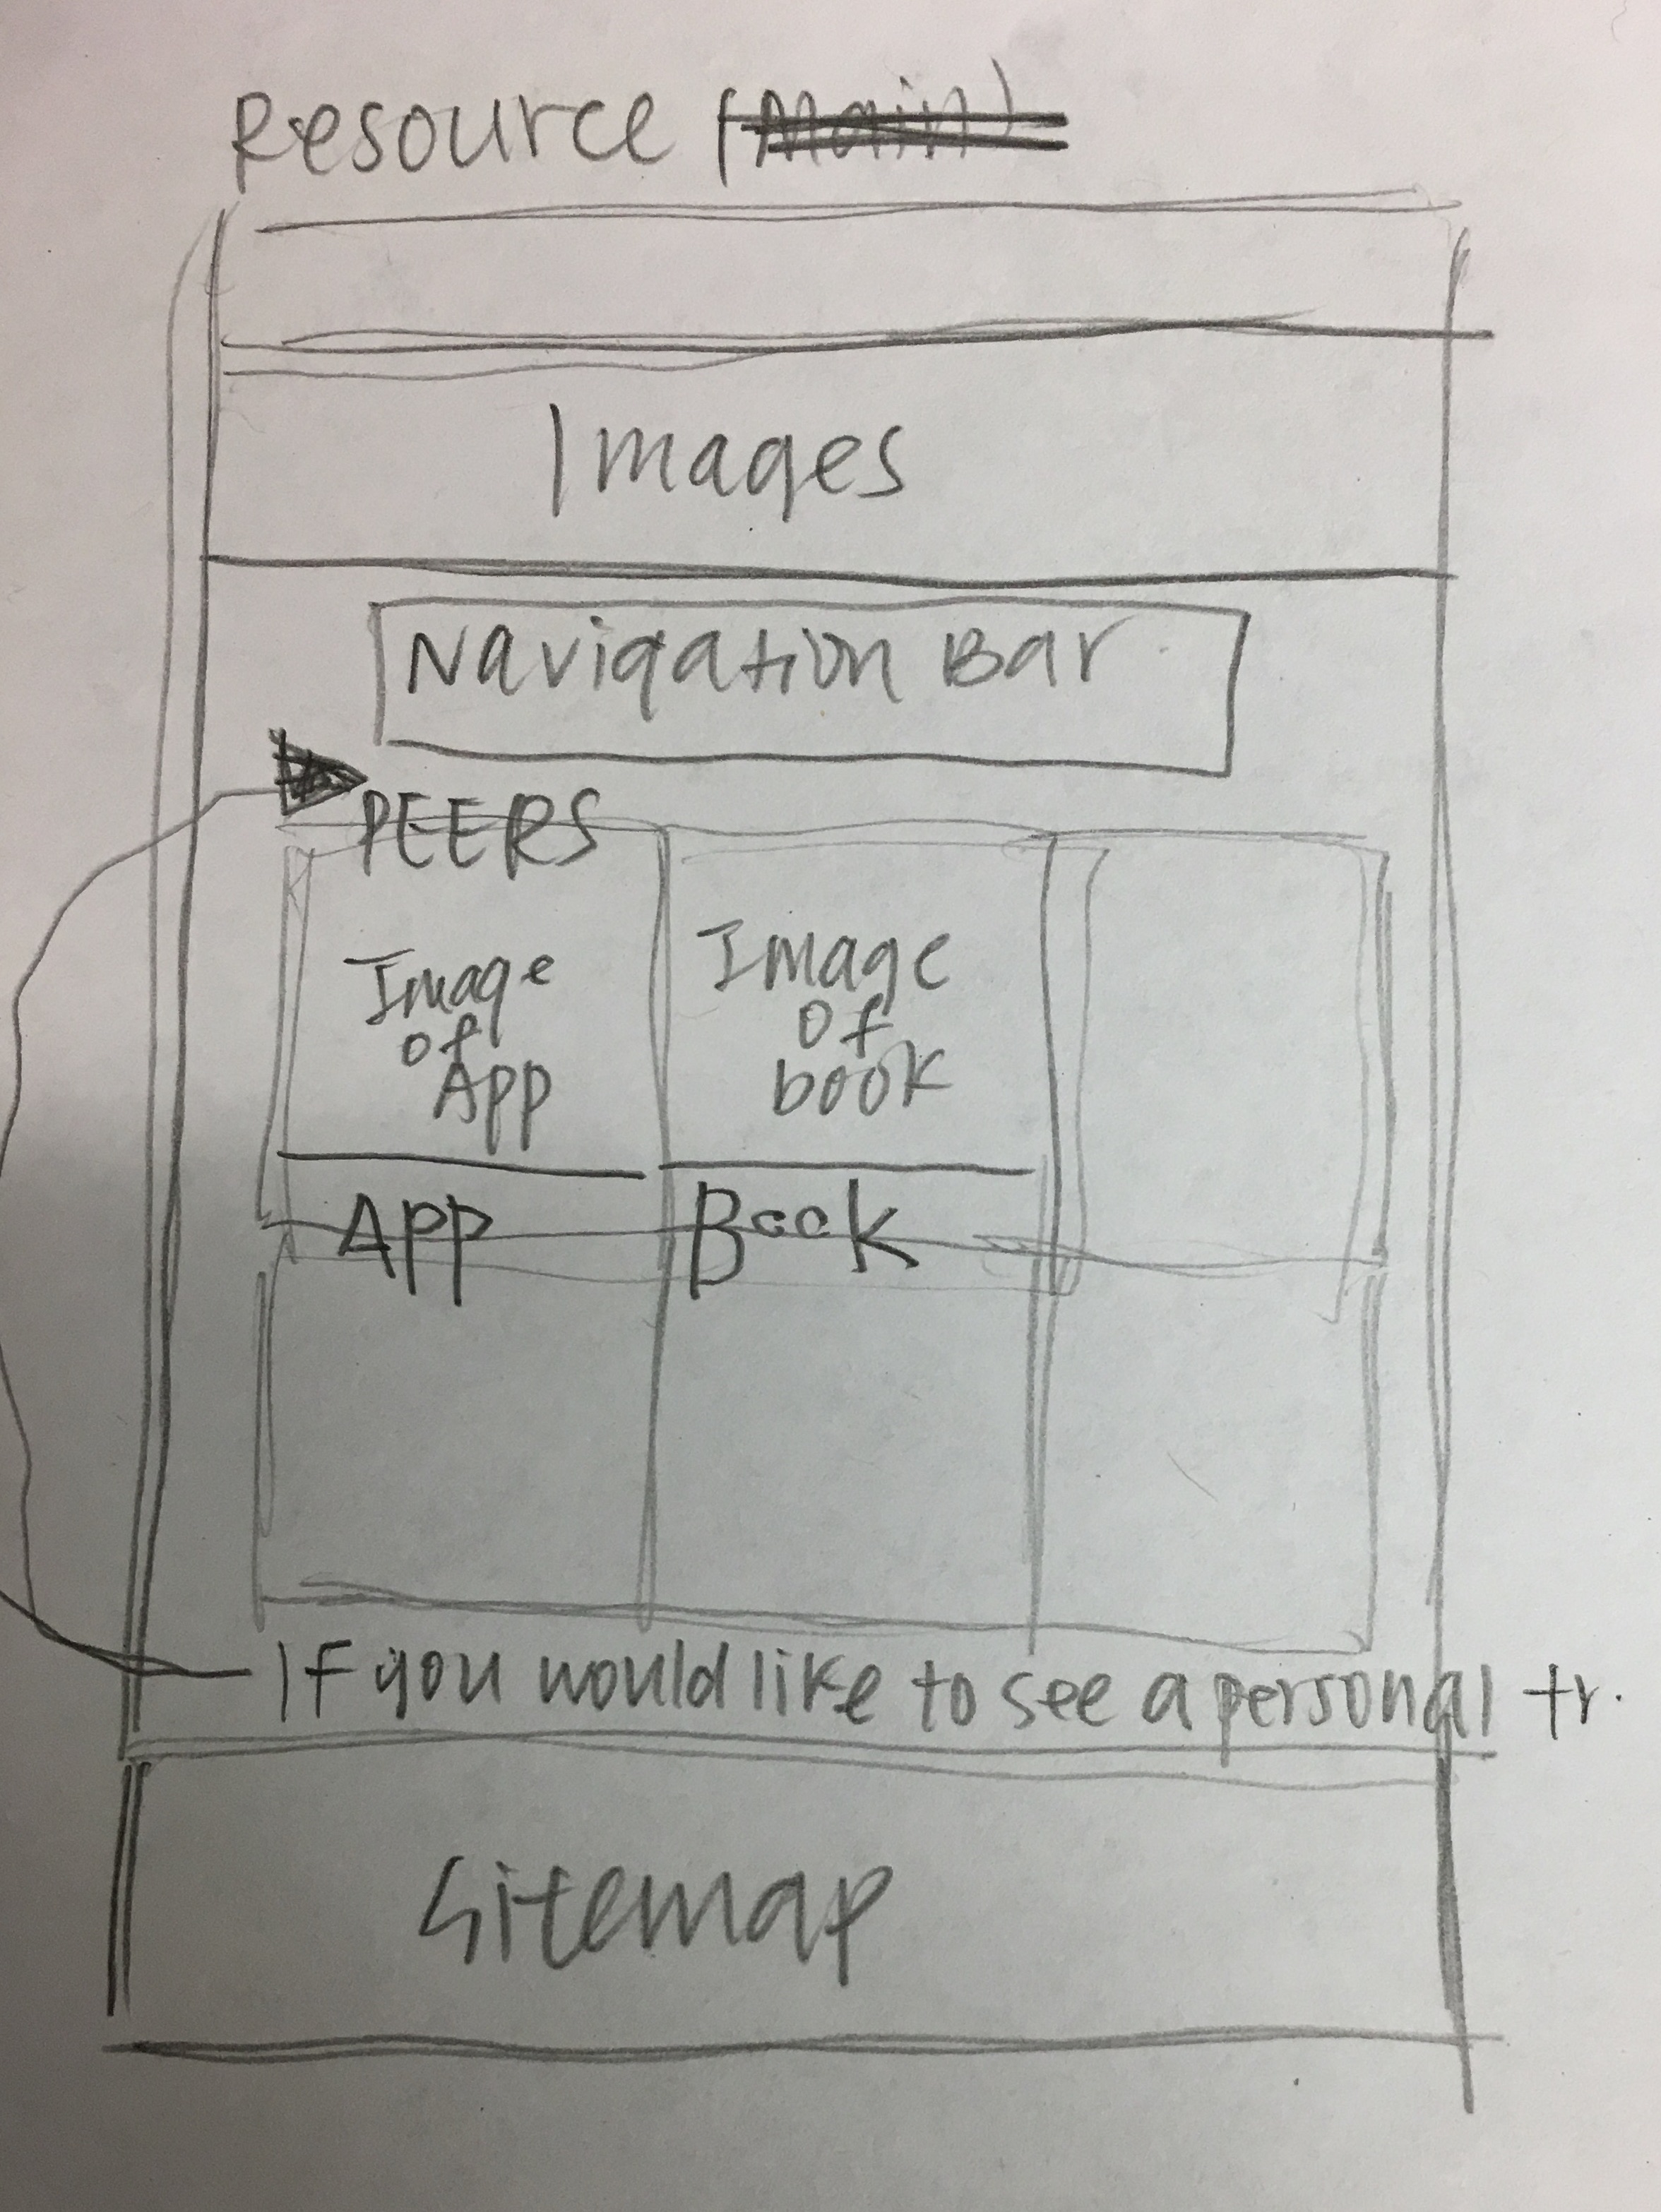 Resource (Main)
Images
Navigation Bar
PEERS
Image
of
App
Image
of
book
App
Book
If you would like to see a personal tr.
Sitemap